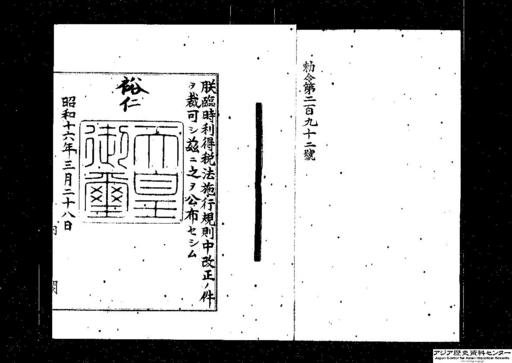 勅令第二百九十二號
朕臨時利得税法施行規則中改正ノ件
ヲ裁可シ茲ニ之ヲ公布セシム
裕仁
天皇
御璽
昭和十六年三月二十八日
内閣
アジア歴史資料センター
Japan Center for Asian Historical Records